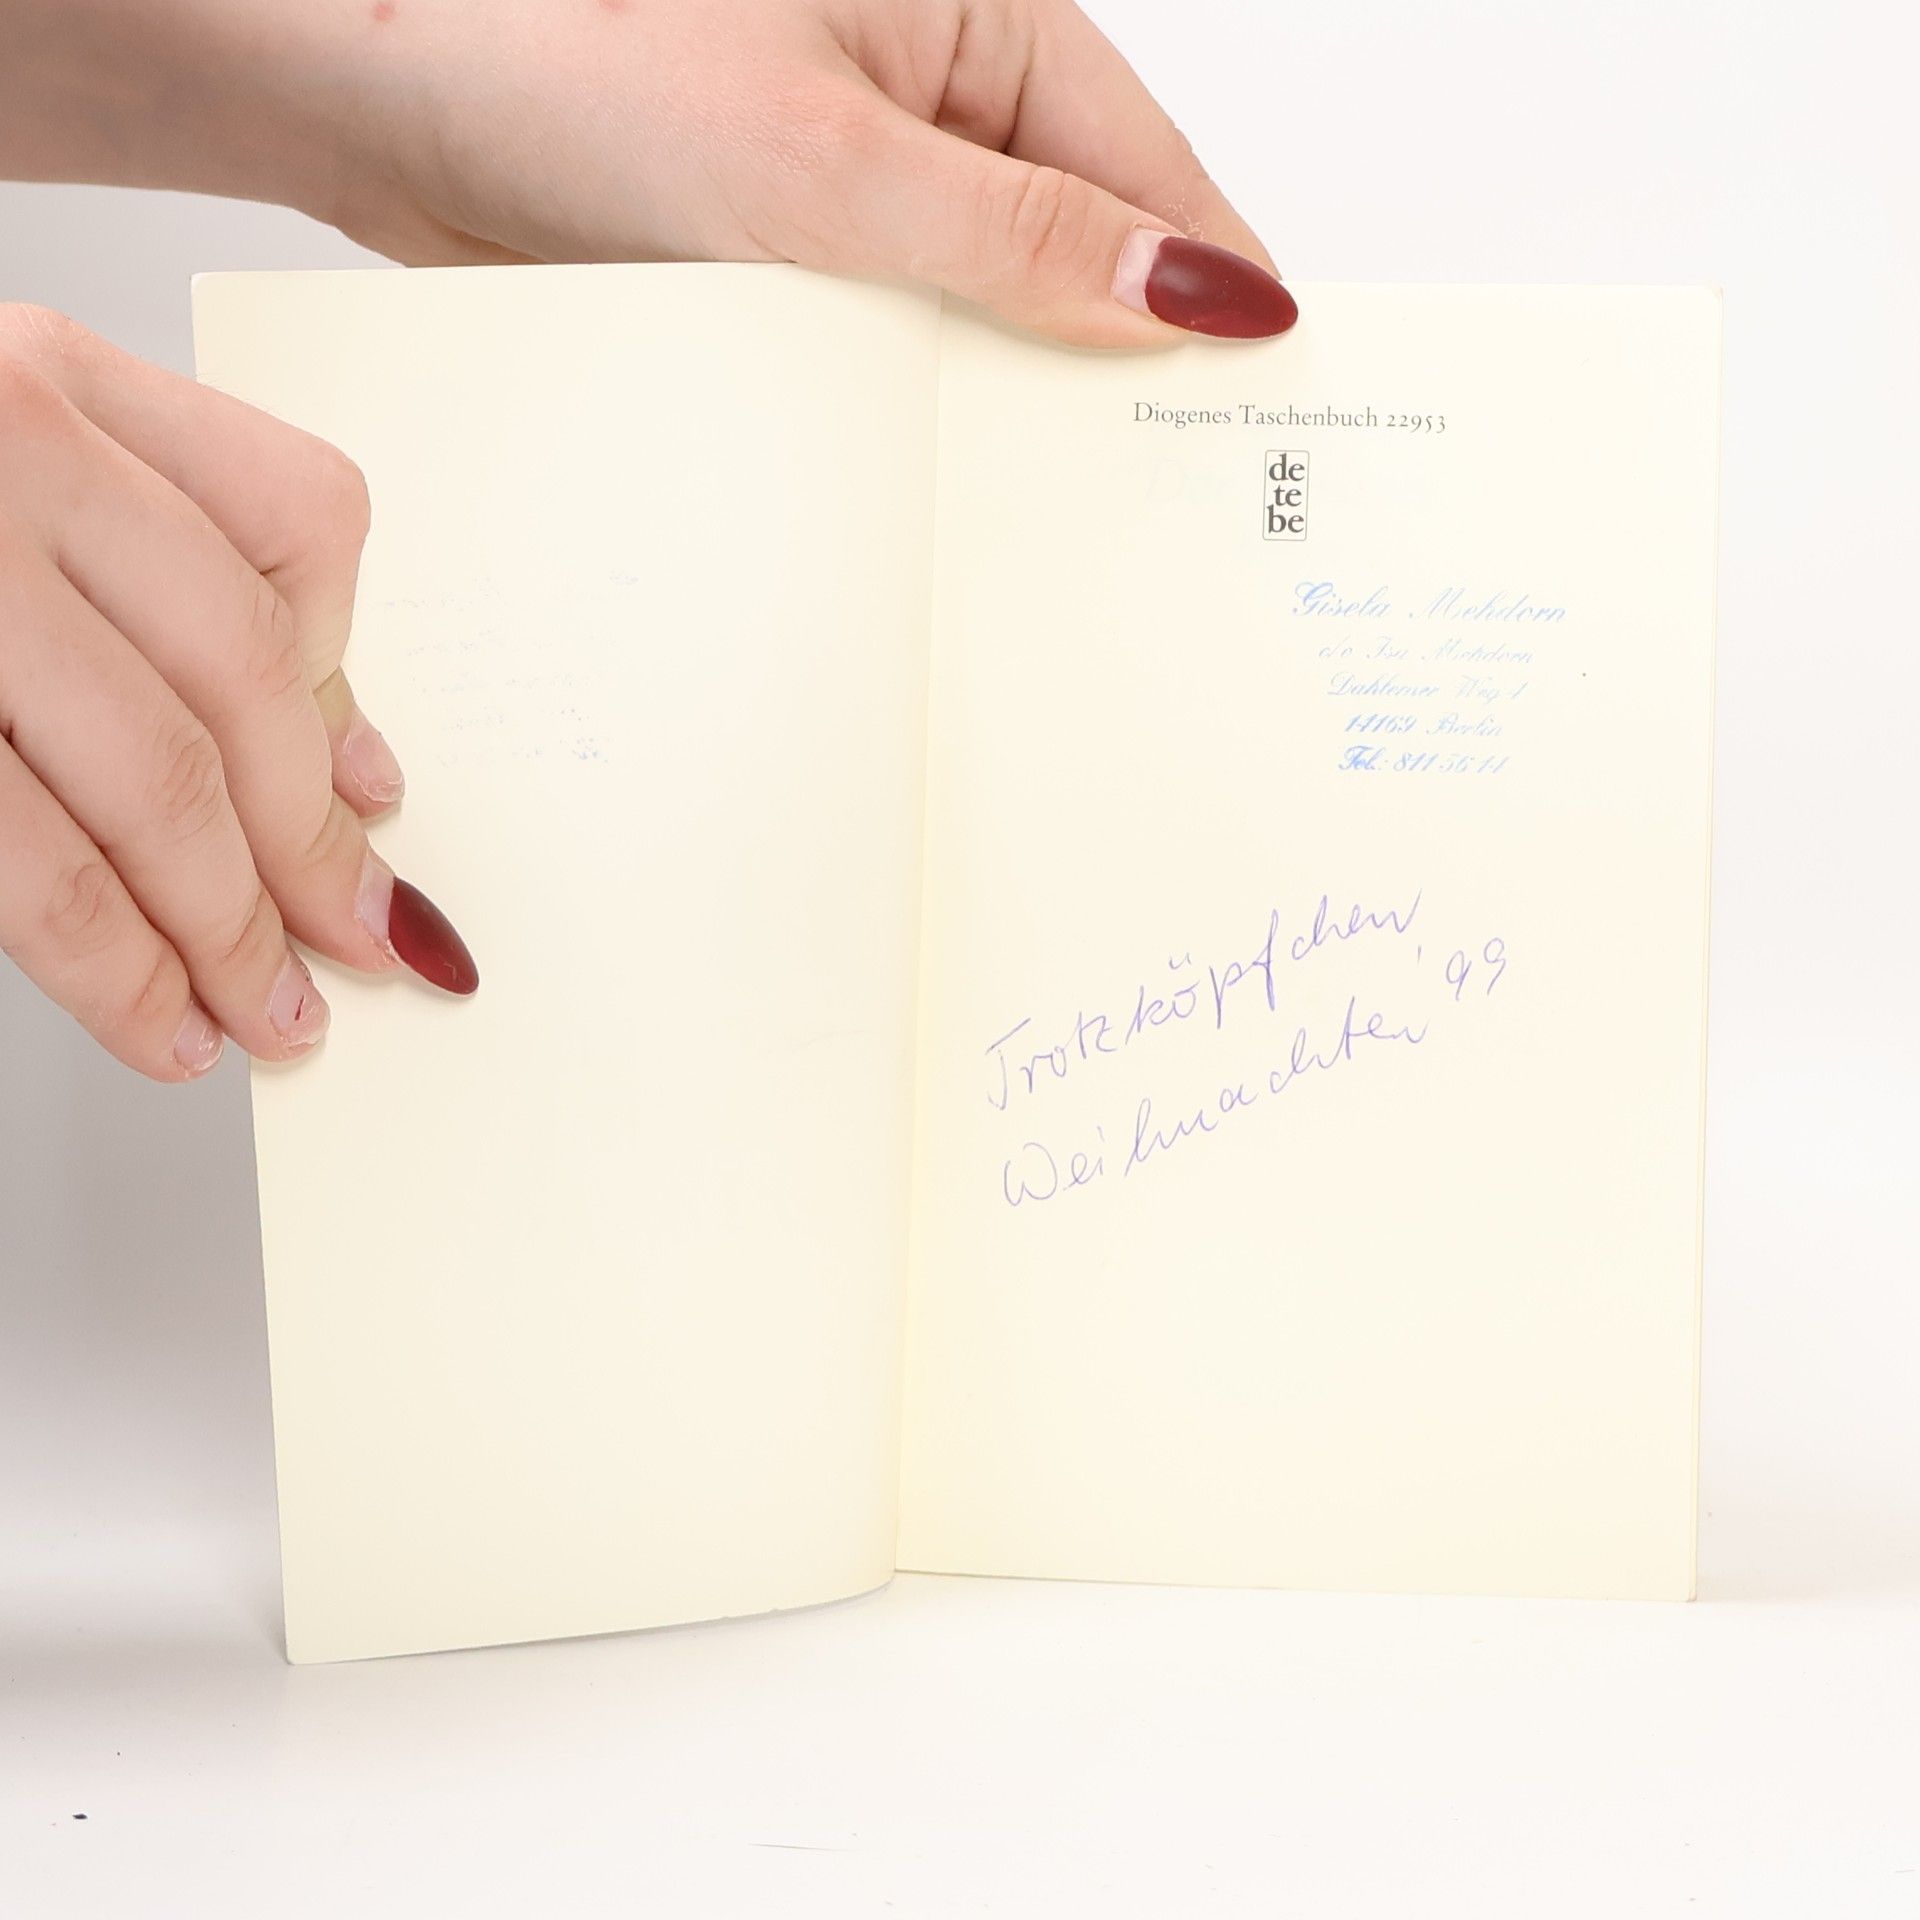 Diogenes Taschenbuch 22953
de
te
be
Gisela Mehdorn
c/o Isa Mehdorn
Dahlemer Weg
14169 Berlin
Tel.: 811 56 14
Trotzköpfchen,
Weihnachten '99